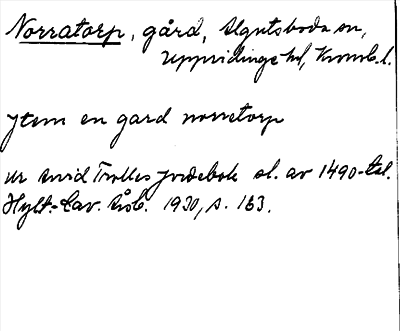 Norratorp, gård, Älgutsboda sn,
Uppvidinge hd, Kronob. l.
Jtem en gard norretorp
ur Arvid Trolles jordebok sl. av 1490-tal.
Hylt.-Cav. årsb. 1930, s. 163.